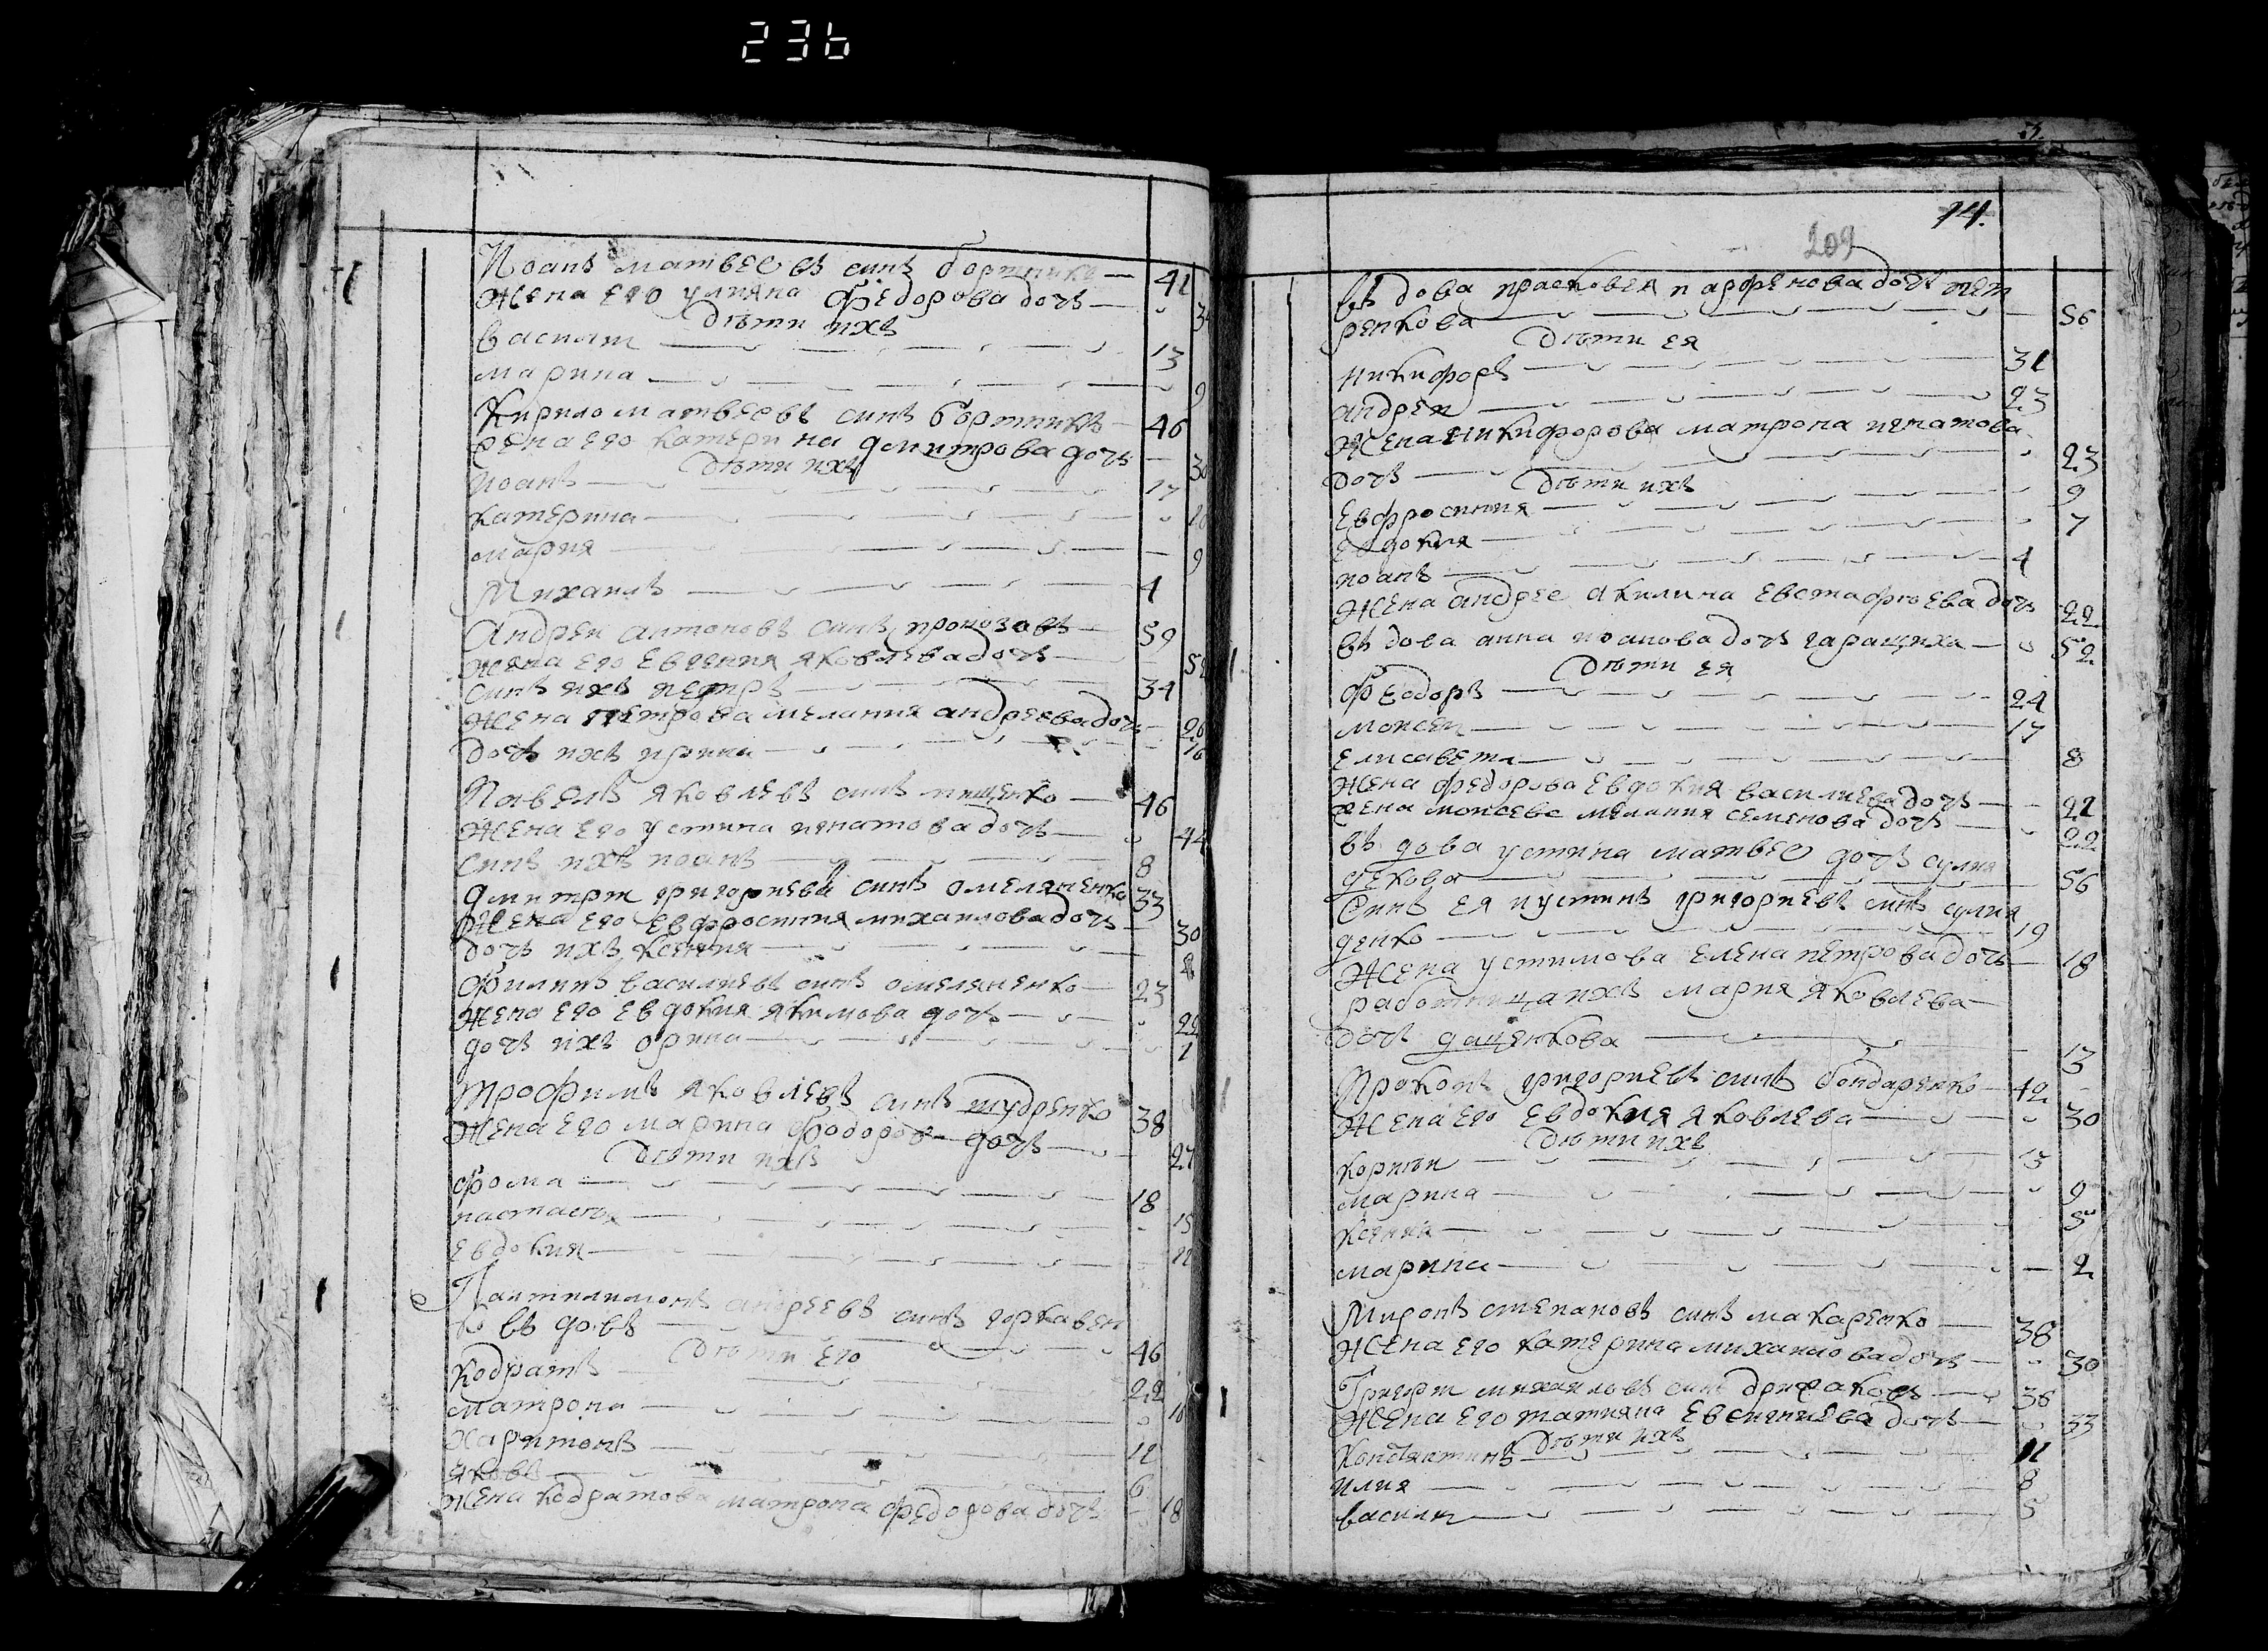 236
Иоанъ матвеевъ синъ бортникъ — 41
жена его улияна федорова дочъ — 34
дѣти ихъ
василий 13
марина 9
Кирило матвеевъ синъ бортникъ 46
жена его катерина дмитрова дочъ — 30
дѣти ихъ
иоанъ 17
катерина 10
мария 9
Михаилъ 4
Андрей антоновъ синъ 59
жена его евгения яковлева дочъ
синъ ихъ петръ 34
жена петрова мелания андреева дочъ 26
дочъ ихъ ирина
Павелъ яковлевъ синъ 46
жена его устина игнатова дочъ 44
синъ ихъ иоанъ 8
дмитрий григориевъ синъ омеляненко 33
жена его евфросиния михаилова дочъ 30
дочъ ихъ ксения
филипъ василиевъ синъ омеляненко 23
жена его евдокия якимова дочъ 22
дочъ ихъ орина 1
Трофимъ яковлевъ синъ шудренко 38
жена его марина федорова дочъ 27
дѣти ихъ
фома 18
настасия 15
евдокия 12
Пантилимонъ андреевъ синъ горкавен
ко вдовъ 46
дѣти его
кодратъ 22
матрона
харитонъ 12
яковъ 6
жена кодратова матрона федорова дочъ 18
3.
14.
209
въдова прасковея парфенова дочъ пет
ренкова 56
дѣти ея
никифоръ 31
андрей 23
жена никифорова матрона игнатова
дочъ 23
дѣти ихъ
евфросиния 9
евдокия 7
иоанъ 4
жена андрее акилина евстафиева дочъ 22
въдова анна иоанова дочъ гаращиха 52
дѣти ея
феодоръ 24
моисей 17
елисавета 8
жена федорова евдокия василиева дочъ 22
жена моисеева мелания семенова дочъ 22
въдова устина матвее дочъ сулия
дскова 56
Синъ ея иустинъ григориевъ синъ сулия
денко 19
жена устимова елена петрова дочъ 18
работница ихъ мария яковлева
дочъ дащенкова 13
Прокопъ григориевъ синъ бондаренко 42
жена его евдокия яковлева 30
дѣти ихъ
корнѣй 13
марина 9
ксения 5
марина 2
Миронъ степановъ синъ макаренко 38
жена его катерина михаилова дочъ 30
Григорий михаиловъ синъ 38
жена его татияна евсигниева дочъ 33
дѣти ихъ
Константинъ 11
илия 8
василий 5